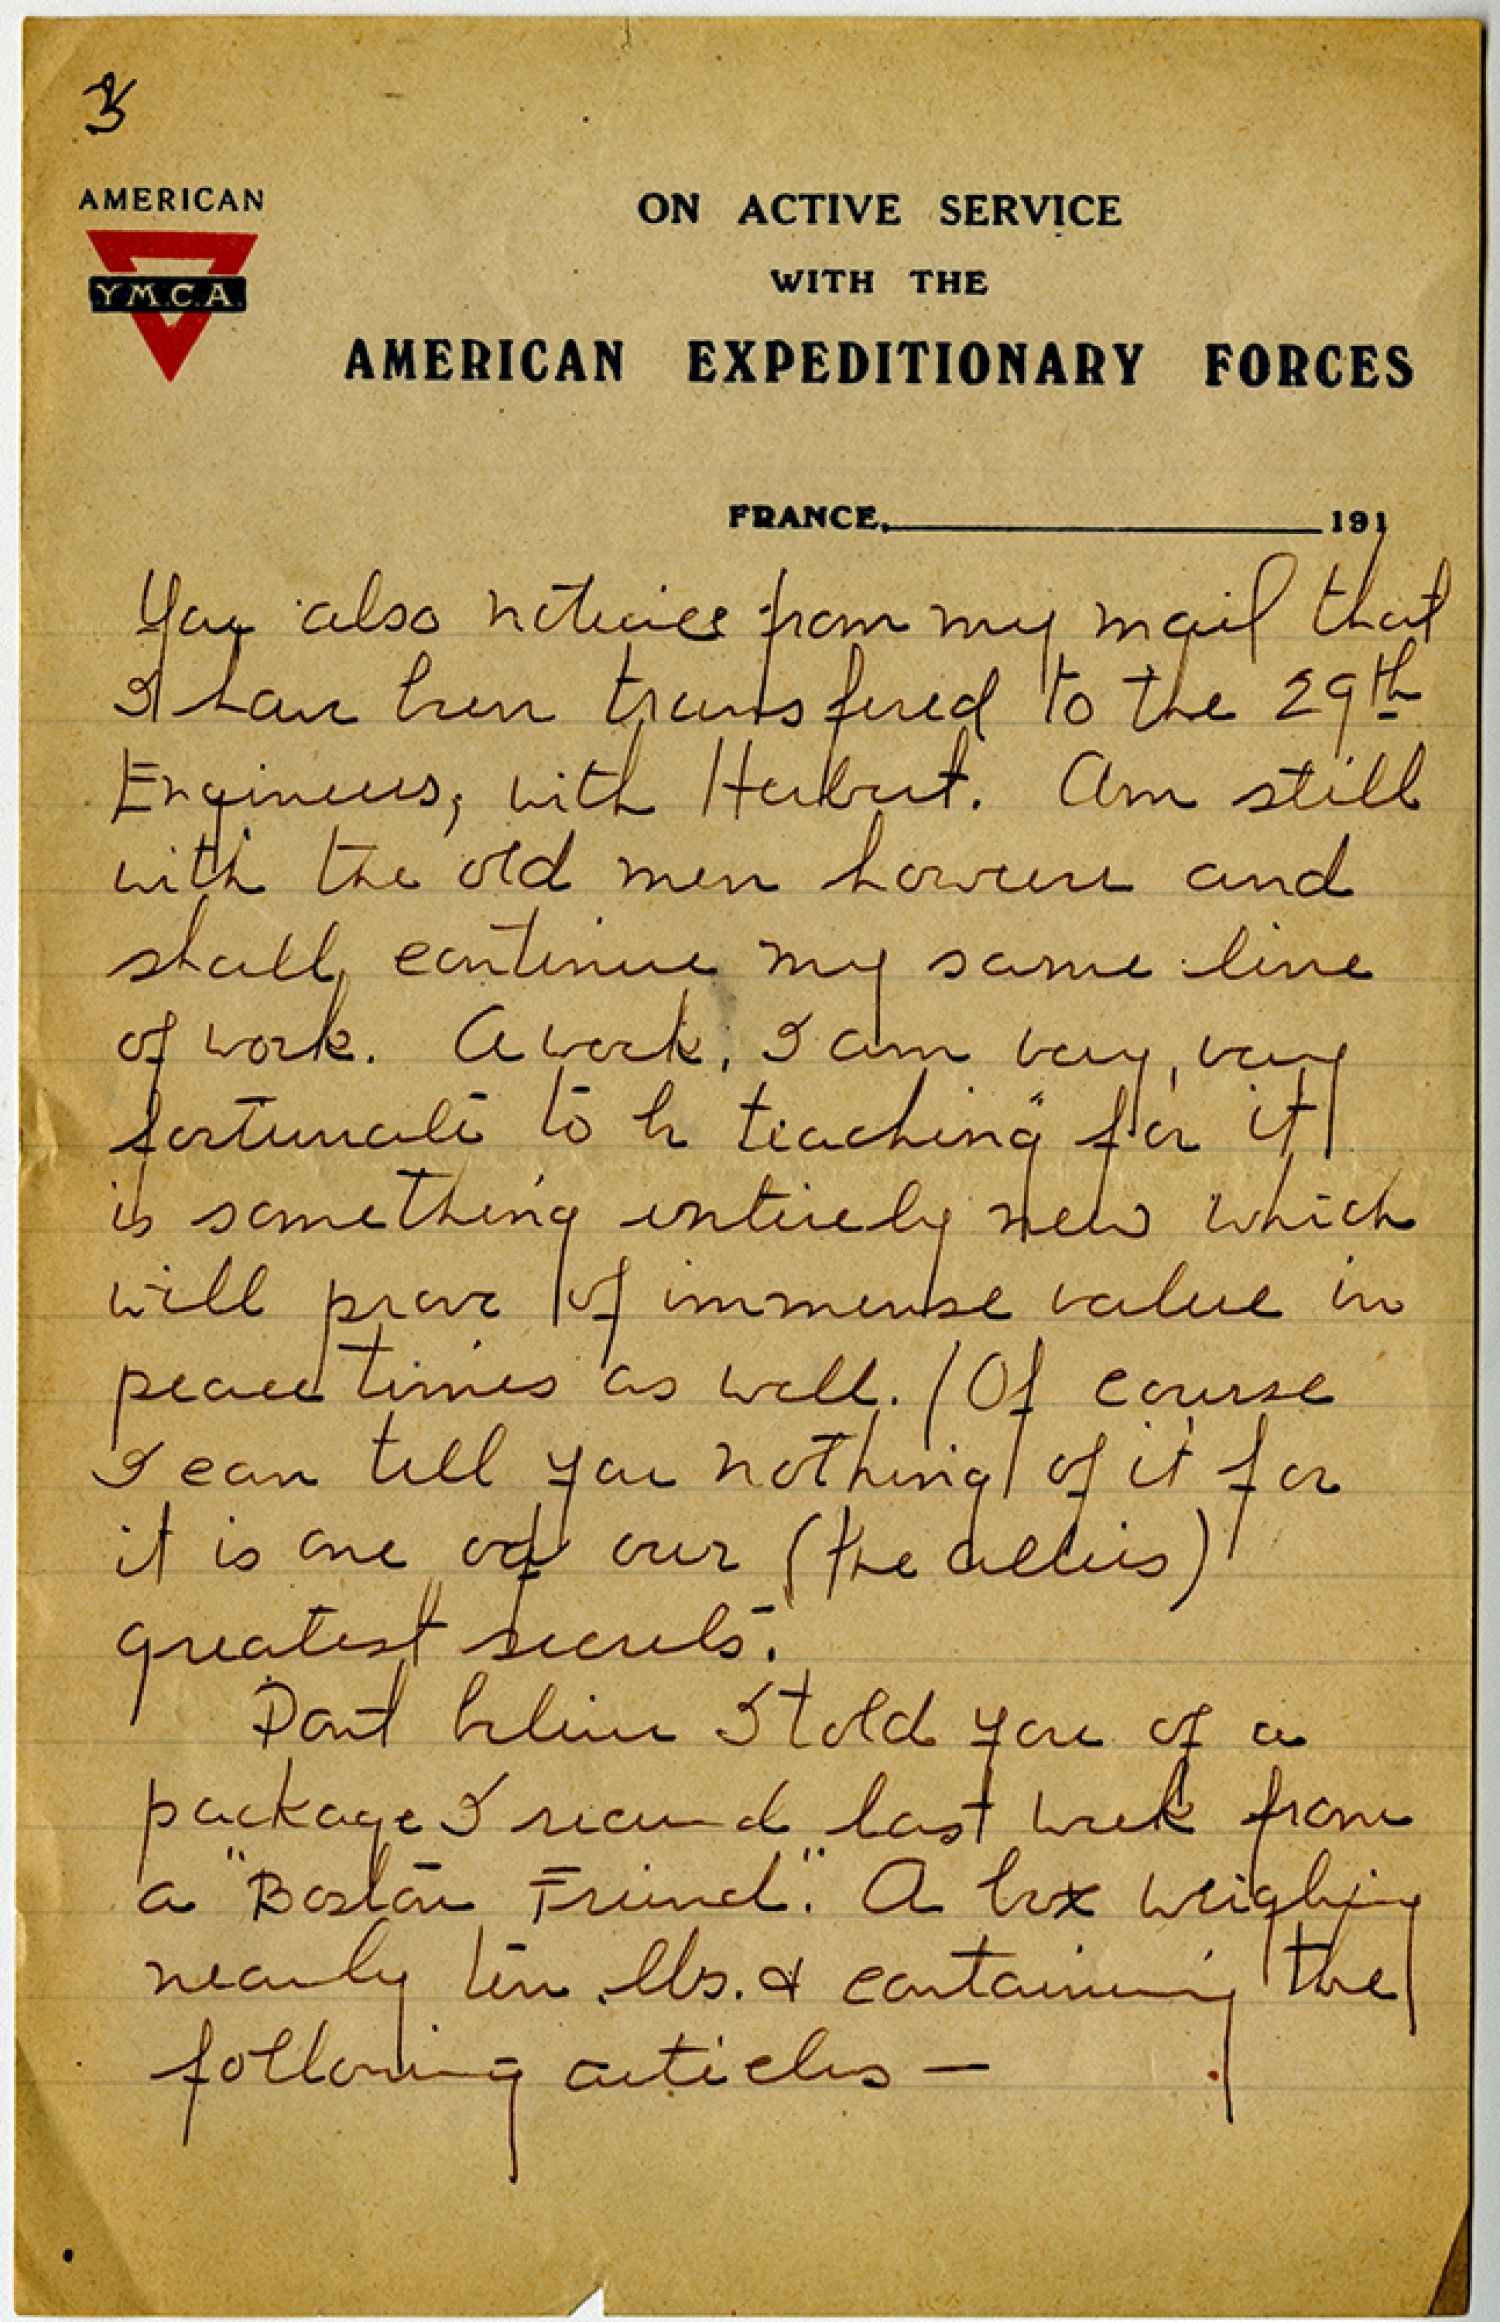 3
AMERICAN
Y.M.C.A.
ON ACTIVE SERVICE
WITH THE
AMERICAN EXPEDITIONARY FORCES
FRANCE, 191
You also notice from my mail that
I have been transfered to the 29th
Engineers, with Herbert. Am still
with the old men however and
shall continue my same line
of work. A work, I am very, very
fortunate to be "teaching" for it
is something entirely new which
will prove of immense value in
peace times as well. (Of course
I can tell you nothing of it for
it is one of our (the allies)
greatest secrets.
Dont believe I told you of a
package I received last week from
a "Boston Friend". A box weighing
nearly ten lbs. & containing the
following articles —